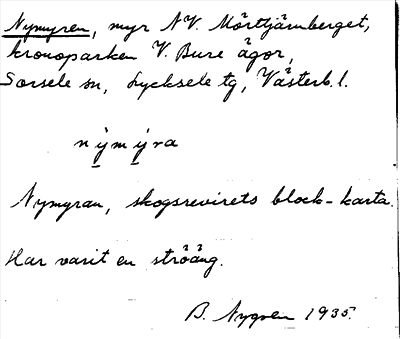 Nymyren, myr NV. Mörttjärnberget,
kronoparken V. Bure ägor,
Sorsele sn, Lycksele tg, Västerb. l.
nýmýra
Nymyran, skogsrevirets block-karta.
Har varit en ströäng.
B. Nygren 1935.